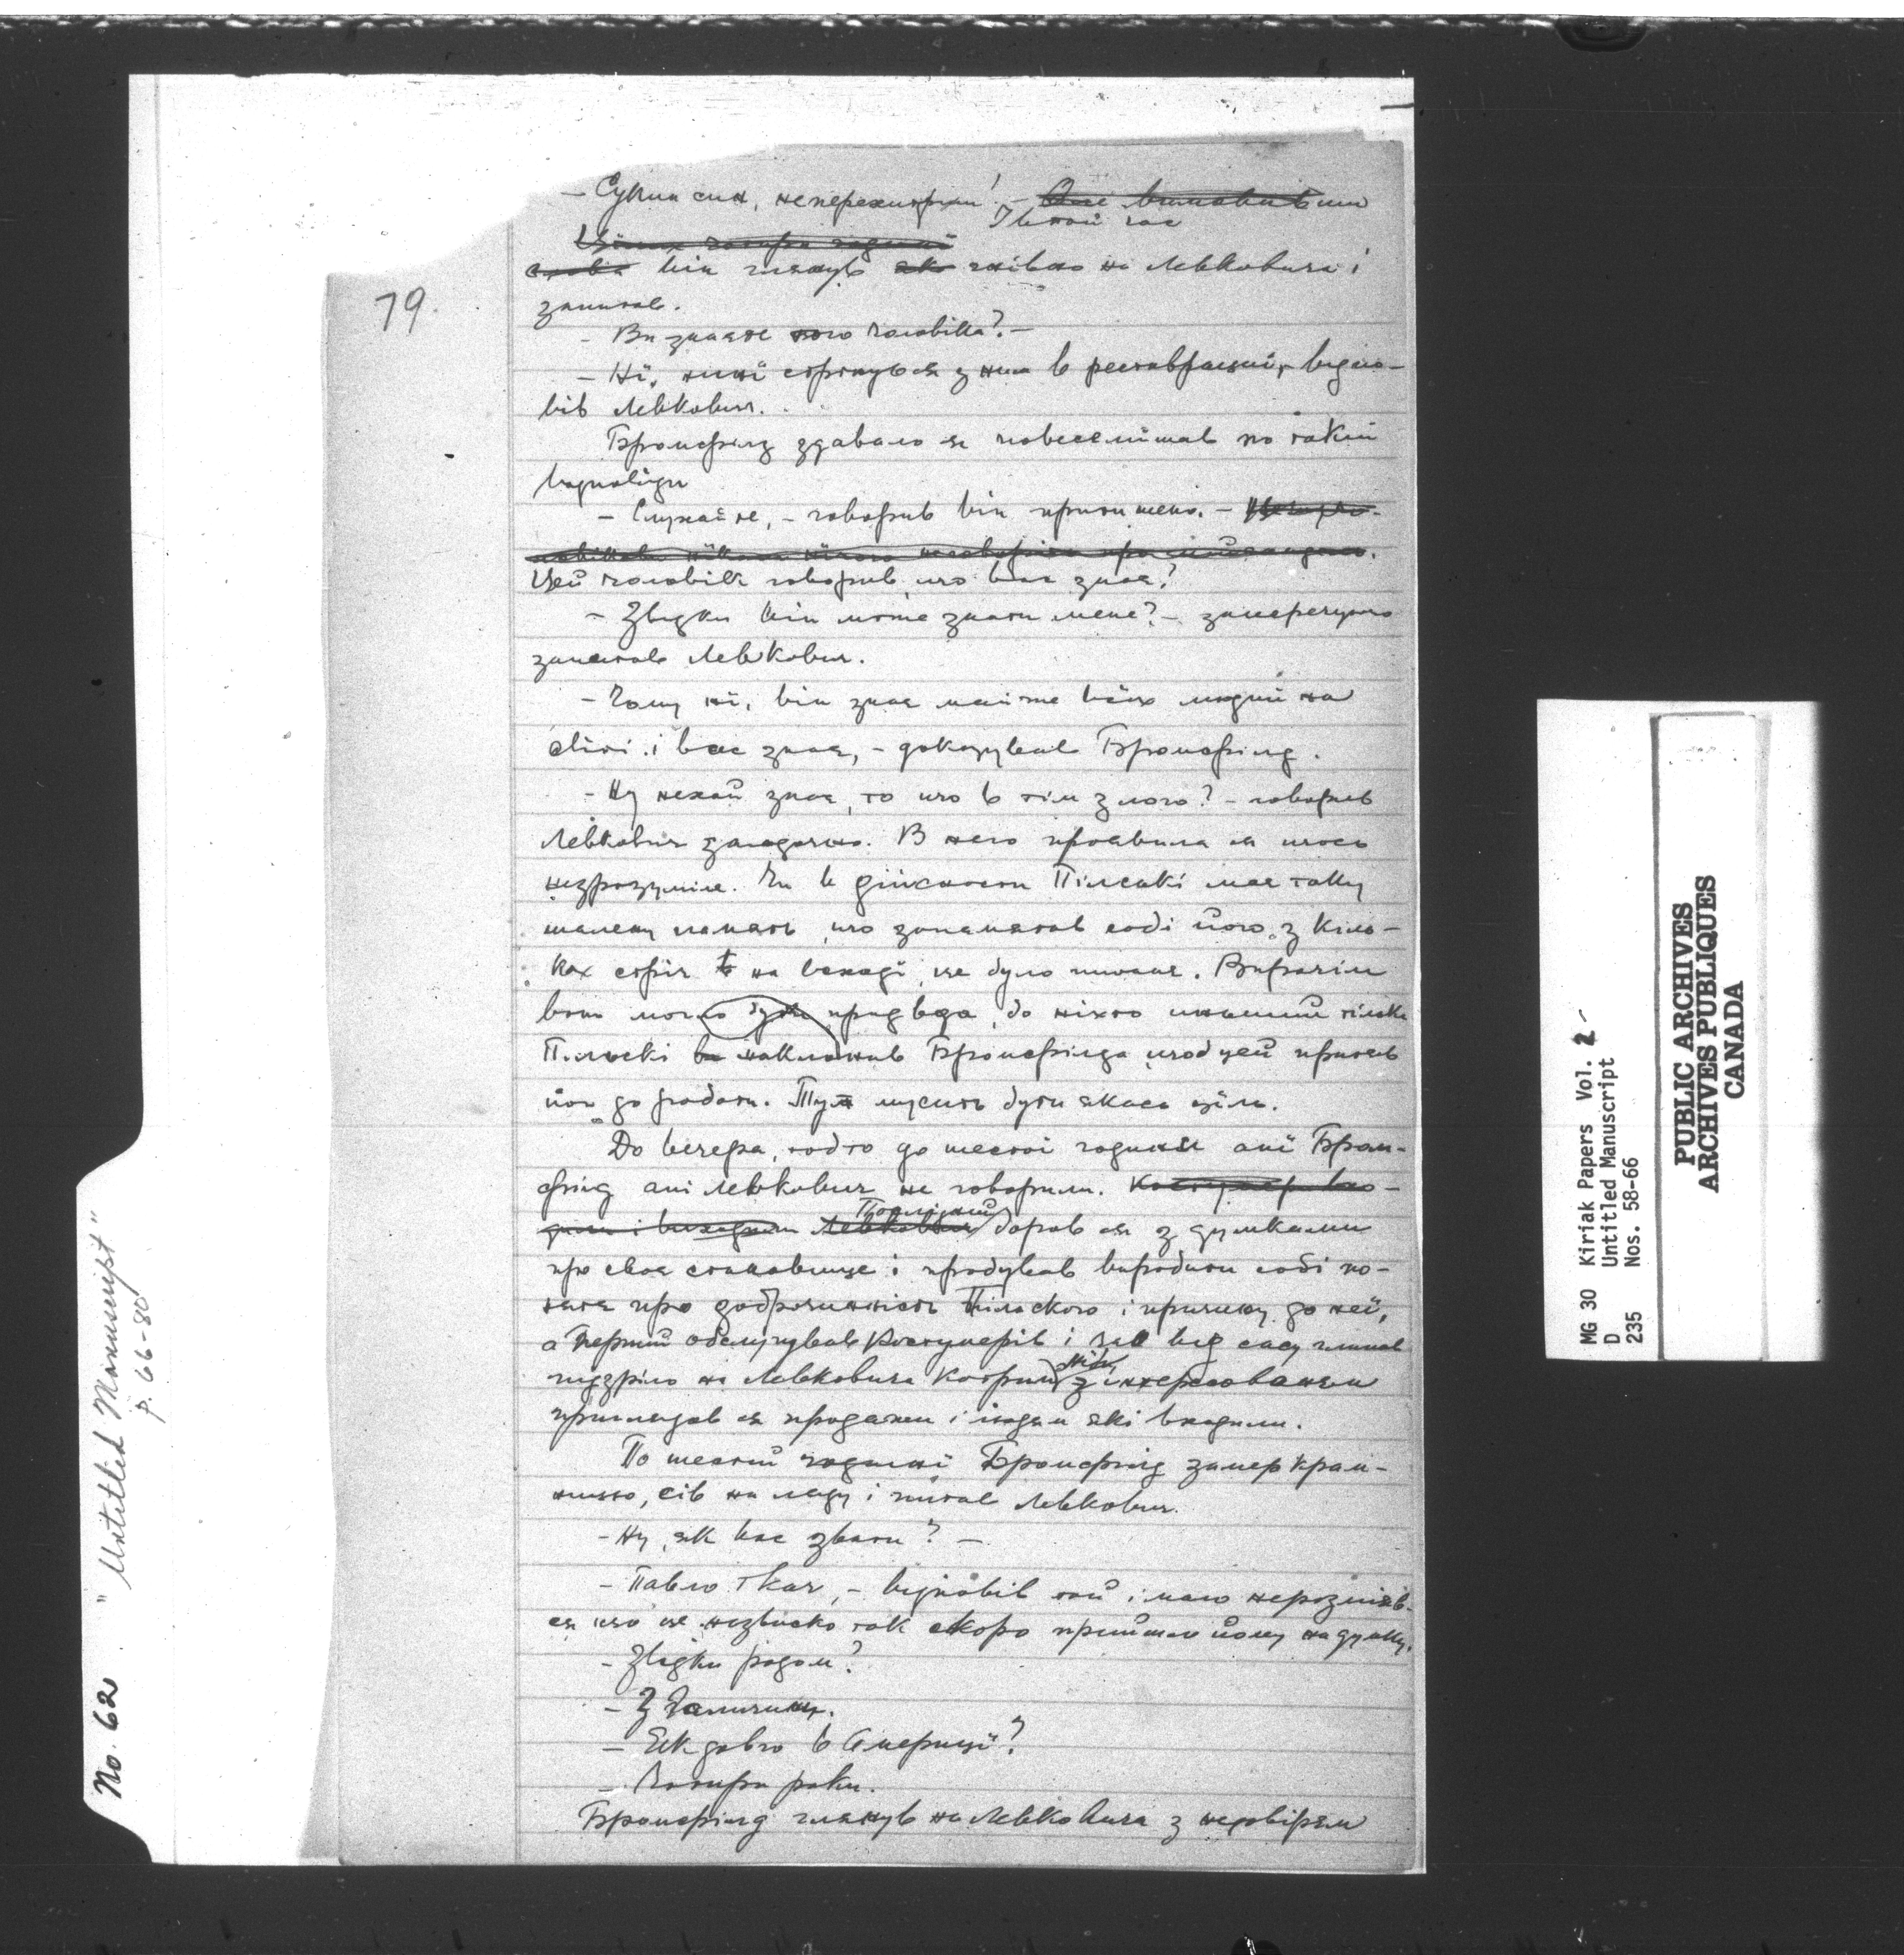 79.
— Сукин син, неперехитриш! —
І в той час
він глянув гнівно на Левковича і
запитав.
- Ви знаєте того чоловіка? —
- Ні, нині стрінувся з ним в реставрациї, - відпо-
вів Левкович.
Бромфілд здавало ся повеселішав по такій
відповіди
- Слухайте, - говорив він притишено. -
Цей чоловік говорив, що вас знає?
- Звідки він може знати мене? - заперечуючо
запитав Левкович.
- Чому ні, він знає майже всїх людий на
світі і вас знає, - доказував Бромфілд.
- Ну нехай знає, то що в тім злого? - говорив
Левкович загадочно. В него проявила ся щось
незрозуміле. Чи в дійсности Пілскі має таку
шалену память, що запамятав собі його з кіль-
кох стріч на Канаді, це було питанє. Впрочім
воно могло бути правда, бо ніхто иньший тілько
Пільскі наклонив Бромфілда, щоб цей приняв
його до роботи. Тут мусить бути якась ціль.
До вечера, тобто до шестої години анї Бром-
філд анї Левкович не говорили.
Послїдний боров ся з думками
про своє становище і пробував виробити собі по-
нятя про доброчинність Пільского і причину до неї,
а перший обслугував костумерів і час від часу глипав
підзріло на Левковича котрий з інтересованєм
приглядав ся продажи і людям які входили.
По шестій годинї Бромфілд запер крам-
ницю, сів на ляду і питав Левковича.
- Ну, як вас звати? —
- Павло Ткач, - відповів той і мало нерозсміяв-
ся що це назвиско так скоро прийшло йому на думку.
- Звідки родом?
- З Галичини.
- Як довго в Америці?
- Чотири роки.
Бромфілд глянув на Левковича з недовірям
No. 62 "Untitled Manuscript"
p. 66-80
MG 30 Kiriak Papers Vol. 2
D Untitled Manuscript
235 Nos. 58-66
PUBLIC ARCHIVES
ARCHIVES PUBLIQUES
CANADA